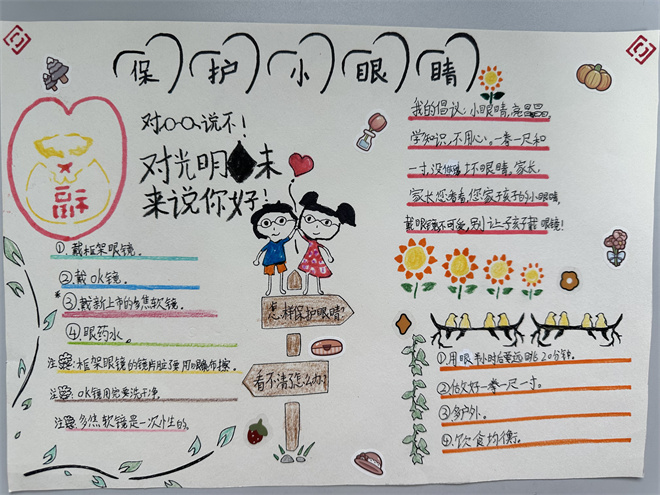 保护小眼睛
对O-O说不！
对光明未
来说你好！
福
①戴框架眼镜。
②戴ok镜。
③戴新上市的多焦软镜。
④眼药水。
注意:框架眼镜的镜片脏了要用眼镜布擦。
注意:OK镜用完要洗干净。
注意:多焦软镜是一次性的。
怎样保护眼睛?
看不清了怎么办?
我的倡议:小眼睛,亮晶晶,
学知识,不用心。一拳一尺和
一寸,没保护坏眼睛,家长,
家长您看看,您家子孩子的小眼睛,
戴眼镜不可爱,别让子孩子戴眼镜!
①用眼半小时后要远眺20分钟。
②做好一拳一尺一寸。
③多户外。
④饮食均衡。